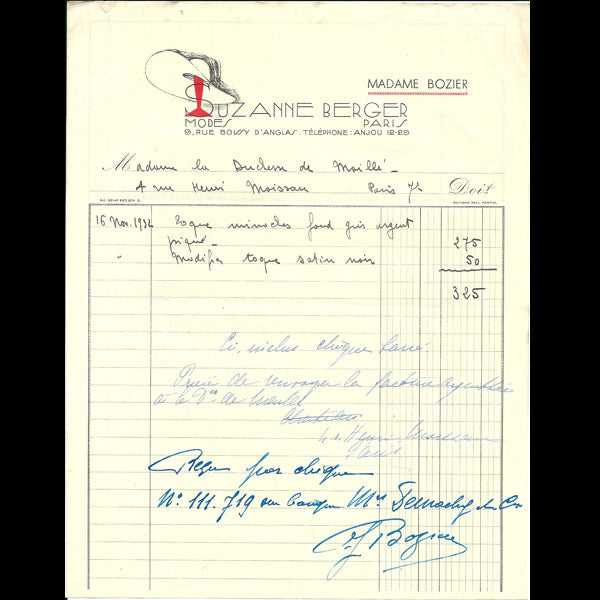 MADAME BOZIER
SUZANNE BERGER
MODES PARIS
9, RUE BOISSY D'ANGLAS. TÉLÉPHONE: ANJOU 12-29
Madame la Duchesse de Maillé_
4 rue Henri Moissan Paris 7e Doit
ÉDITIONS PAUL MARTIAL
16 Nov. 1934 Toque minoches fond gris argent
piqué_ 275
" Modifier toque satin noir 50
325
Ci, inclus chèque barré.
Prière de renvoyer la facture acquittée
à la Dsse de Maillé
4 r. Henri Moissan
Paris
Reçu par chèque
No. 111.719 sur banque Mrs Demachy & Co
J Bozier